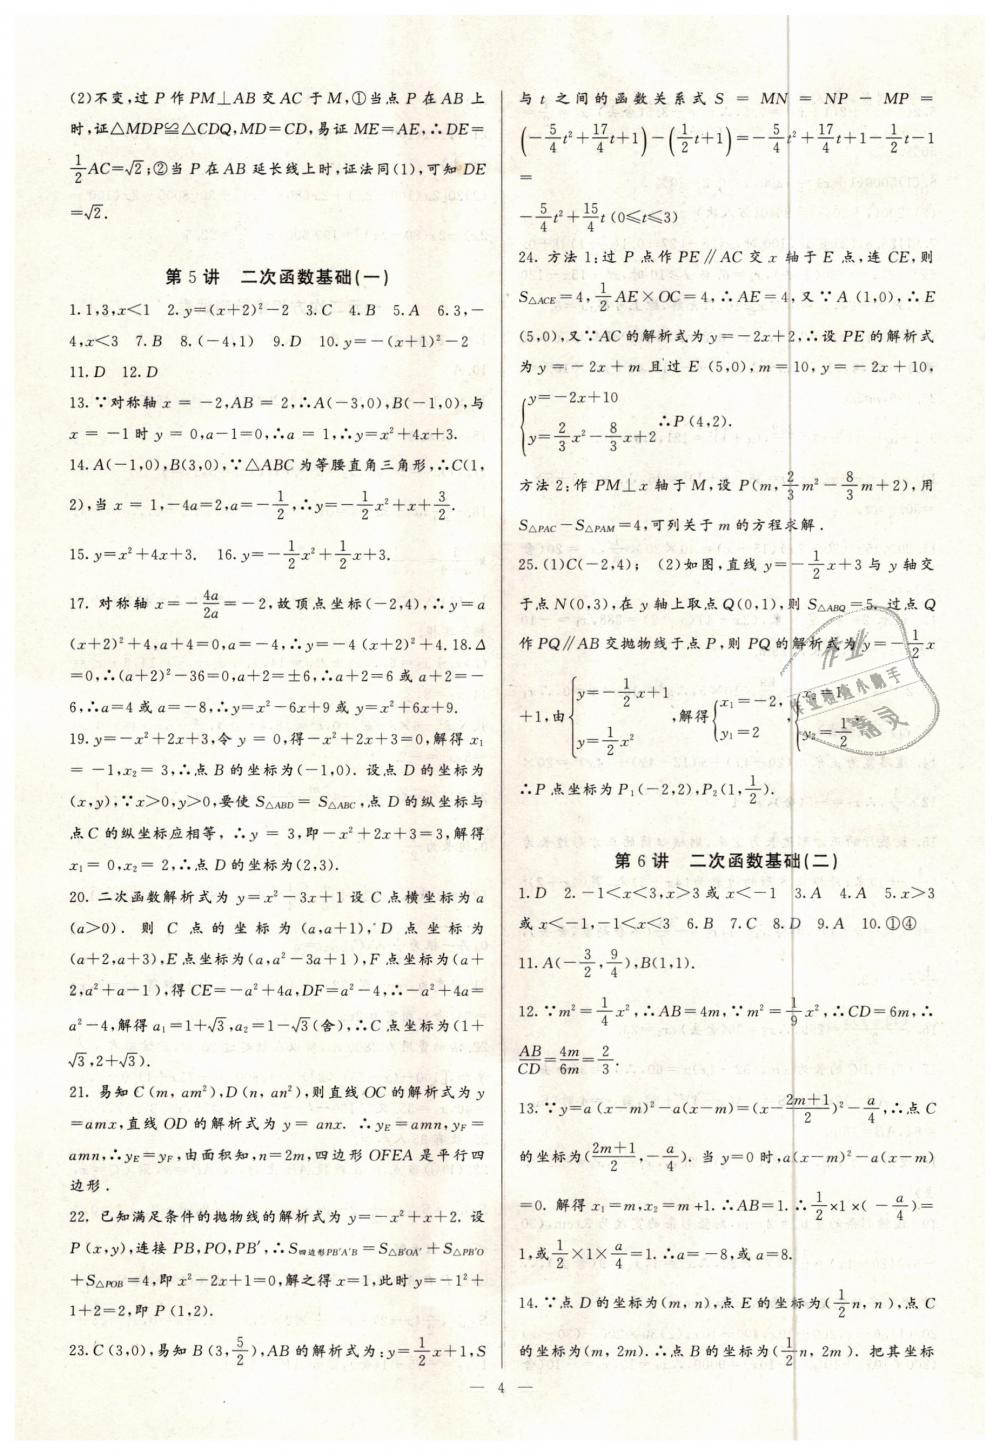 (2)不变,过 P 作 PM⊥AB 交 AC 于 M,①当点 P 在 AB 上
时,证△MDP≌△CDQ,MD=CD,易证 ME=AE,∴DE=
1/2 AC=√2;②当 P 在 AB 延长线上时,证法同(1),可知 DE
=√2.
第 5 讲 二次函数基础(一)
1.1,3,x<1 2.y=(x+2)²-2 3.C 4.B 5.A 6.3,-
4,x<3 7.B 8.(-4,1) 9.D 10.y=-(x+1)²-2
11.D 12.D
13.∵对称轴 x = -2,AB = 2,∴A(-3,0),B(-1,0),与
x = -1时 y = 0,a-1=0,∴a = 1,∴y=x²+4x+3.
14.A(-1,0),B(3,0),∵△ABC 为等腰直角三角形,∴C(1,
2),当 x = 1,-4a=2,a=-1/2,∴y=-1/2x²+x+3/2.
15.y=x²+4x+3. 16.y=-1/2x²+1/2x+3.
17. 对称轴 x=-4a/2a=-2,故顶点坐标(-2,4),∴y=a
(x+2)²+4,a+4=0,a=-4,∴y=-4(x+2)²+4.18.Δ
=0,∴(a+2)²-36=0,a+2=±6,∴a+2=6 或 a+2=-
6,∴a=4 或 a=-8,∴y=x²-6x+9 或 y=x²+6x+9.
19.y=-x²+2x+3,令 y = 0,得-x²+2x+3=0,解得 x₁
= -1,x₂= 3,∴点 B 的坐标为(-1,0). 设点 D 的坐标为
(x,y),∵x>0,y>0,要使 S△ABD= S△ABC,点 D 的纵坐标与
点 C 的纵坐标应相等, ∴y = 3,即-x²+2x+3=3,解得
x₁= 0,x₂= 2,∴点 D 的坐标为(2,3).
20. 二次函数解析式为 y=x²-3x+1 设 C 点横坐标为 a
(a>0). 则 C 点的坐标为(a,a+1),D 点坐标为
(a+2,a+3),E 点坐标为(a,a²-3a+1),F 点坐标为(a+
2,a²+a-1),得 CE=-a²+4a,DF=a²-4,∴-a²+4a=
a²-4,解得 a₁=1+√3,a₂=1-√3(舍),∴C 点坐标为(1+
√3,2+√3).
21. 易知 C(m, am²),D(n, an²),则直线 OC 的解析式为 y
=amx,直线 OD 的解析式为 y= anx. ∴yE=amn,yF=
amn,∴yE=yF,由面积知,n=2m,四边形 OFEA 是平行四
边形.
22. 已知满足条件的抛物线的解析式为 y=-x²+x+2. 设
P(x,y),连接 PB,PO,PB′,∴S四边形PB′A′B=S△B′OA′+S△PB′O
+S△POB=4,即 x²-2x+1=0,解之得 x=1,此时 y=-1²+
1+2=2,即 P(1,2).
23.C(3,0),易知 B(3,5/2),AB 的解析式为:y=1/2x+1,S
与 t 之间的函数关系式 S = MN = NP - MP =
(-5/4t²+17/4t+1)-(1/2t+1)=-5/4t²+17/4t+1-1/2t-1
=
-5/4t²+15/4t(0≤t≤3)
24. 方法 1:过 P 点作 PE∥AC 交 x 轴于 E 点,连 CE,则
S△ACE=4,1/2AE×OC=4,∴AE=4,又∵A(1,0),∴E
(5,0),又∵AC 的解析式为 y=-2x+2,∴设 PE 的解析式
为 y=-2x+m 且过 E(5,0),m=10,y=-2x+10,
{y=-2x+10
y=2/3x²-8/3x+2 ∴P(4,2).
方法 2:作 PM⊥x 轴于 M,设 P(m,2/3m²-8/3m+2),用
S△PAC-S△PAM=4,可列关于 m 的方程求解.
25.(1)C(-2,4); (2)如图,直线 y=-1/2x+3 与 y 轴交
于点 N(0,3),在 y 轴上取点 Q(0,1),则 S△ABQ=5,过点 Q
作 PQ∥AB 交抛物线于点 P,则 PQ 的解析式为 y=-1/2x
+1,由{y=-1/2x+1 y=1/2x²,解得{x₁=-2, y₁=2,{x₂=1 y₂=1/2,
∴P 点坐标为 P₁(-2,2),P₂(1,1/2).
第 6 讲 二次函数基础(二)
1.D 2.-1<x<3,x>3 或 x<-1 3.A 4.A 5.x>3
或 x<-1,-1<x<3 6.B 7.C 8.D 9.A 10.①④
11.A(-3/2,9/4),B(1,1).
12.∵m²=1/4x²,∴AB=4m,∵m²=1/9x²,∴CD=6m,∴
AB/CD=4m/6m=2/3.
13.∵y=a(x-m)²-a(x-m)=(x-2m+1/2)²-a/4,∴点 C
的坐标为(2m+1/2,-a/4). 当 y=0 时,a(x-m)²-a(x-m)
=0. 解得 x₁=m,x₂=m+1.∴AB=1.∴1/2×1×(-a/4)=
1,或1/2×1×a/4=1.∴a=-8,或 a=8.
14.∵点 D 的坐标为(m, n),点 E 的坐标为(1/2n, n),点 C
的坐标为(m, 2m).∴点 B 的坐标为(1/2n, 2m). 把其坐标
— 4 —
作业
精灵